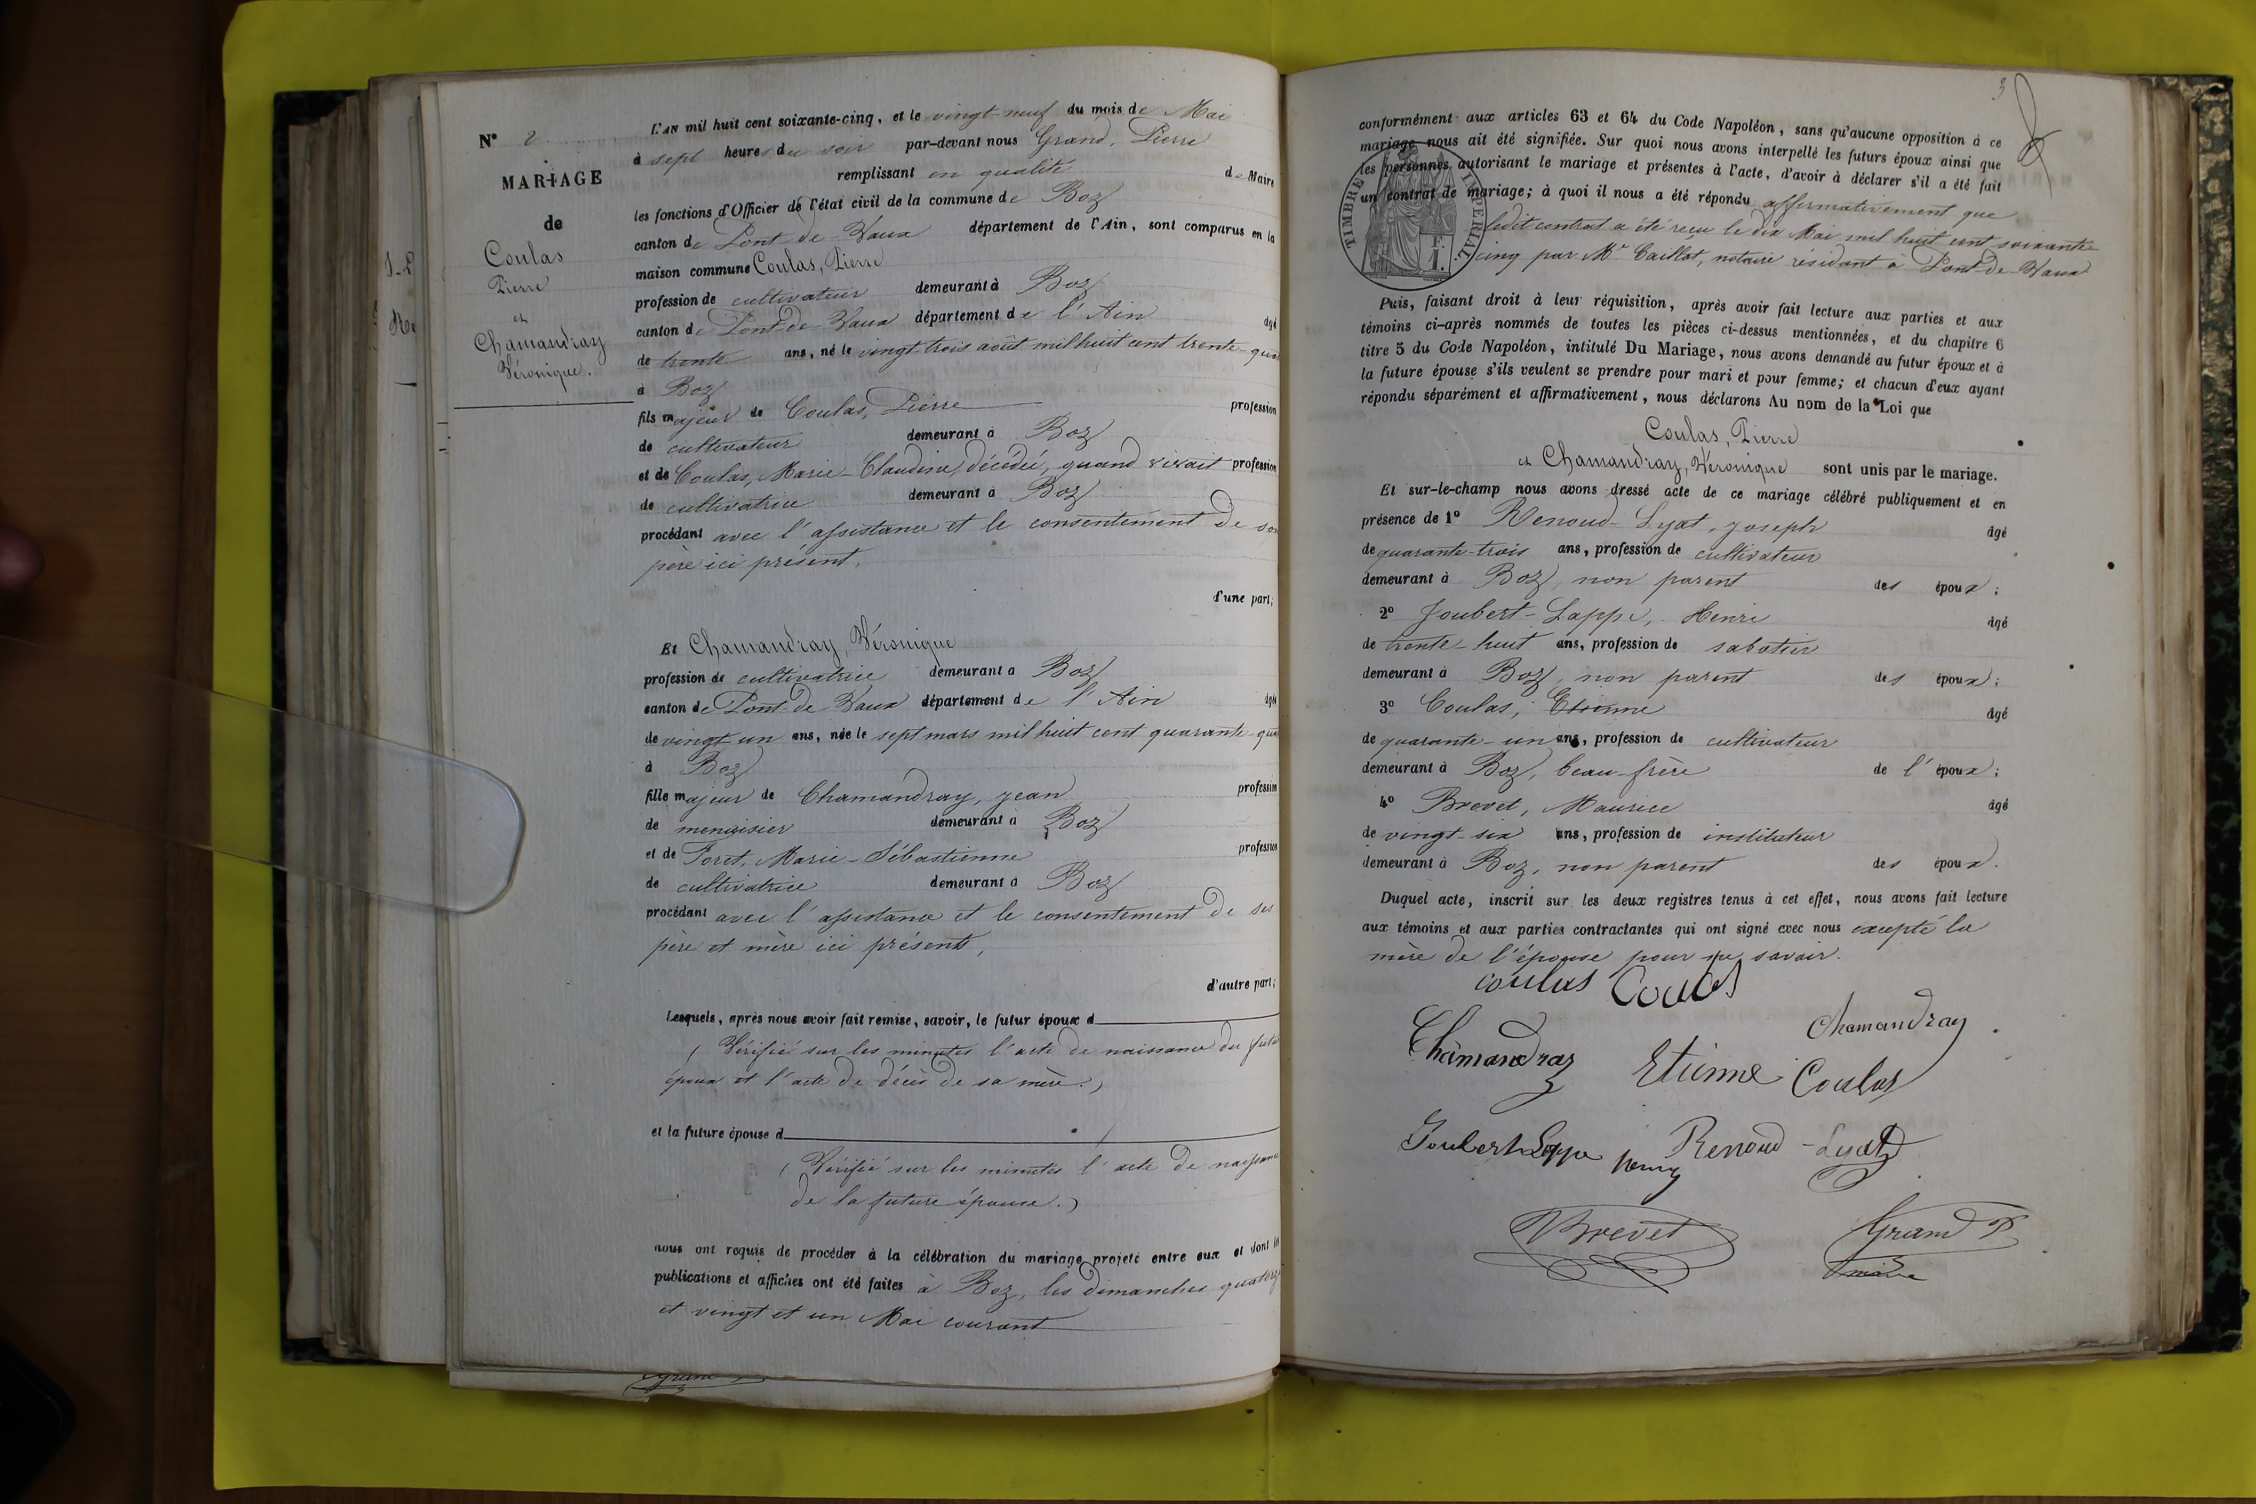 N° 2
MARIAGE
de
Coulas
Pierre
et
Chamandray
Véronique.
L'AN mil huit cent soixante-cinq, et le vingt-neuf du mois de Mai
à sept heures du soir par-devant nous Grand, Pierre
remplissant en qualité de Maire
les fonctions d'Officier de l'état civil de la commune de Boz
canton de Pont-de-Vaux département de l'Ain, sont comparus en la
maison commune Coulas, Pierre
profession de cultivateur demeurant à Boz
canton de Pont-de-Vaux département de l'Ain âgé
de trente ans, né le vingt-trois août mil huit cent trente-qua
à Boz
fils majeur de Coulas, Pierre profession
de cultivateur demeurant à Boz
et de Coulas, Marie-Claudine, décédée, quand vivait profession
de cultivatrice demeurant à Boz
procédant avec l'assistance et le consentement de son
père ici présent,
d'une part;
Et Chamandray, Véronique
profession de cultivatrice demeurant à Boz
canton de Pont-de-Vaux département de l'Ain âgée
de vingt-un ans, née le sept mars mil huit cent quarante-qua
à Boz
fille majeur de Chamandray, Jean profession
de menuisier demeurant à Boz
et de Foret, Marie-Sébastienne profession
de cultivatrice demeurant à Boz
procédant avec l'assistance et le consentement de ses
père et mère ici présents,
d'autre part;
Lesquels, après nous avoir fait remise, savoir, le futur époux d
(Vérifié sur les minutes l'acte de naissance du futur
époux et l'acte de décès de sa mère.)
et la future épouse d
(Vérifié sur les minutes l'acte de naissance
de la future épouse.)
nous ont requis de procéder à la célébration du mariage projeté entre eux et dont les
publications et affiches ont été faites à Boz, les dimanches quatorze
et vingt et un Mai courant
3
conformément aux articles 63 et 64 du Code Napoléon, sans qu'aucune opposition à ce
mariage nous ait été signifiée. Sur quoi nous avons interpellé les futurs époux ainsi que
les personnes autorisant le mariage et présentes à l'acte, d'avoir à déclarer s'il a été fait
un contrat de mariage; à quoi il nous a été répondu affirmativement que
ledit contrat a été reçu le dix Mai mil huit cent soixante-
cinq par Me Caillot, notaire résidant à Pont-de-Vaux
TIMBRE IMPERIAL
F.
1.
Puis, faisant droit à leur réquisition, après avoir fait lecture aux parties et aux
témoins ci-après nommés de toutes les pièces ci-dessus mentionnées, et du chapitre 6
titre 5 du Code Napoléon, intitulé Du Mariage, nous avons demandé au futur époux et à
la future épouse s'ils veulent se prendre pour mari et pour femme; et chacun d'eux ayant
répondu séparément et affirmativement, nous déclarons Au nom de la Loi que
Coulas, Pierre
et Chamandray, Véronique sont unis par le mariage.
Et sur-le-champ nous avons dressé acte de ce mariage célébré publiquement et en
présence de 1° Renoud-Lyat, Joseph âgé
de quarante-trois ans, profession de cultivateur
demeurant à Boz, non parent des époux;
2° Joubert-Lappe, Henri âgé
de trente-huit ans, profession de sabotier
demeurant à Boz, non parent des époux;
3° Coulas, Etienne âgé
de quarante-un ans, profession de cultivateur
demeurant à Boz, beau-frère de l'époux;
4° Brevet, Maurice âgé
de vingt-six ans, profession de instituteur
demeurant à Boz, non parent des époux.
Duquel acte, inscrit sur les deux registres tenus à cet effet, nous avons fait lecture
aux témoins et aux parties contractantes qui ont signé avec nous excepté la
mère de l'épouse pour ne savoir.
coulas Coulas
Chamandray
Chamandray Etienne Coulas
Joubert Lappe henry Renoud-Lyat
Brevet Grand P.
maire